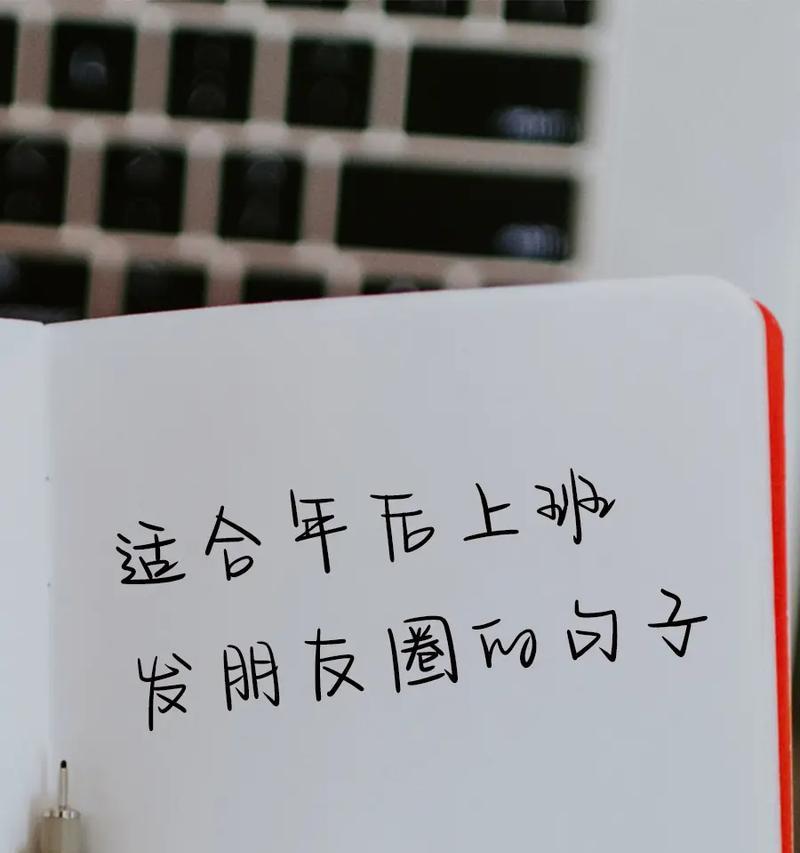 适合年后上班
发朋友圈的句子